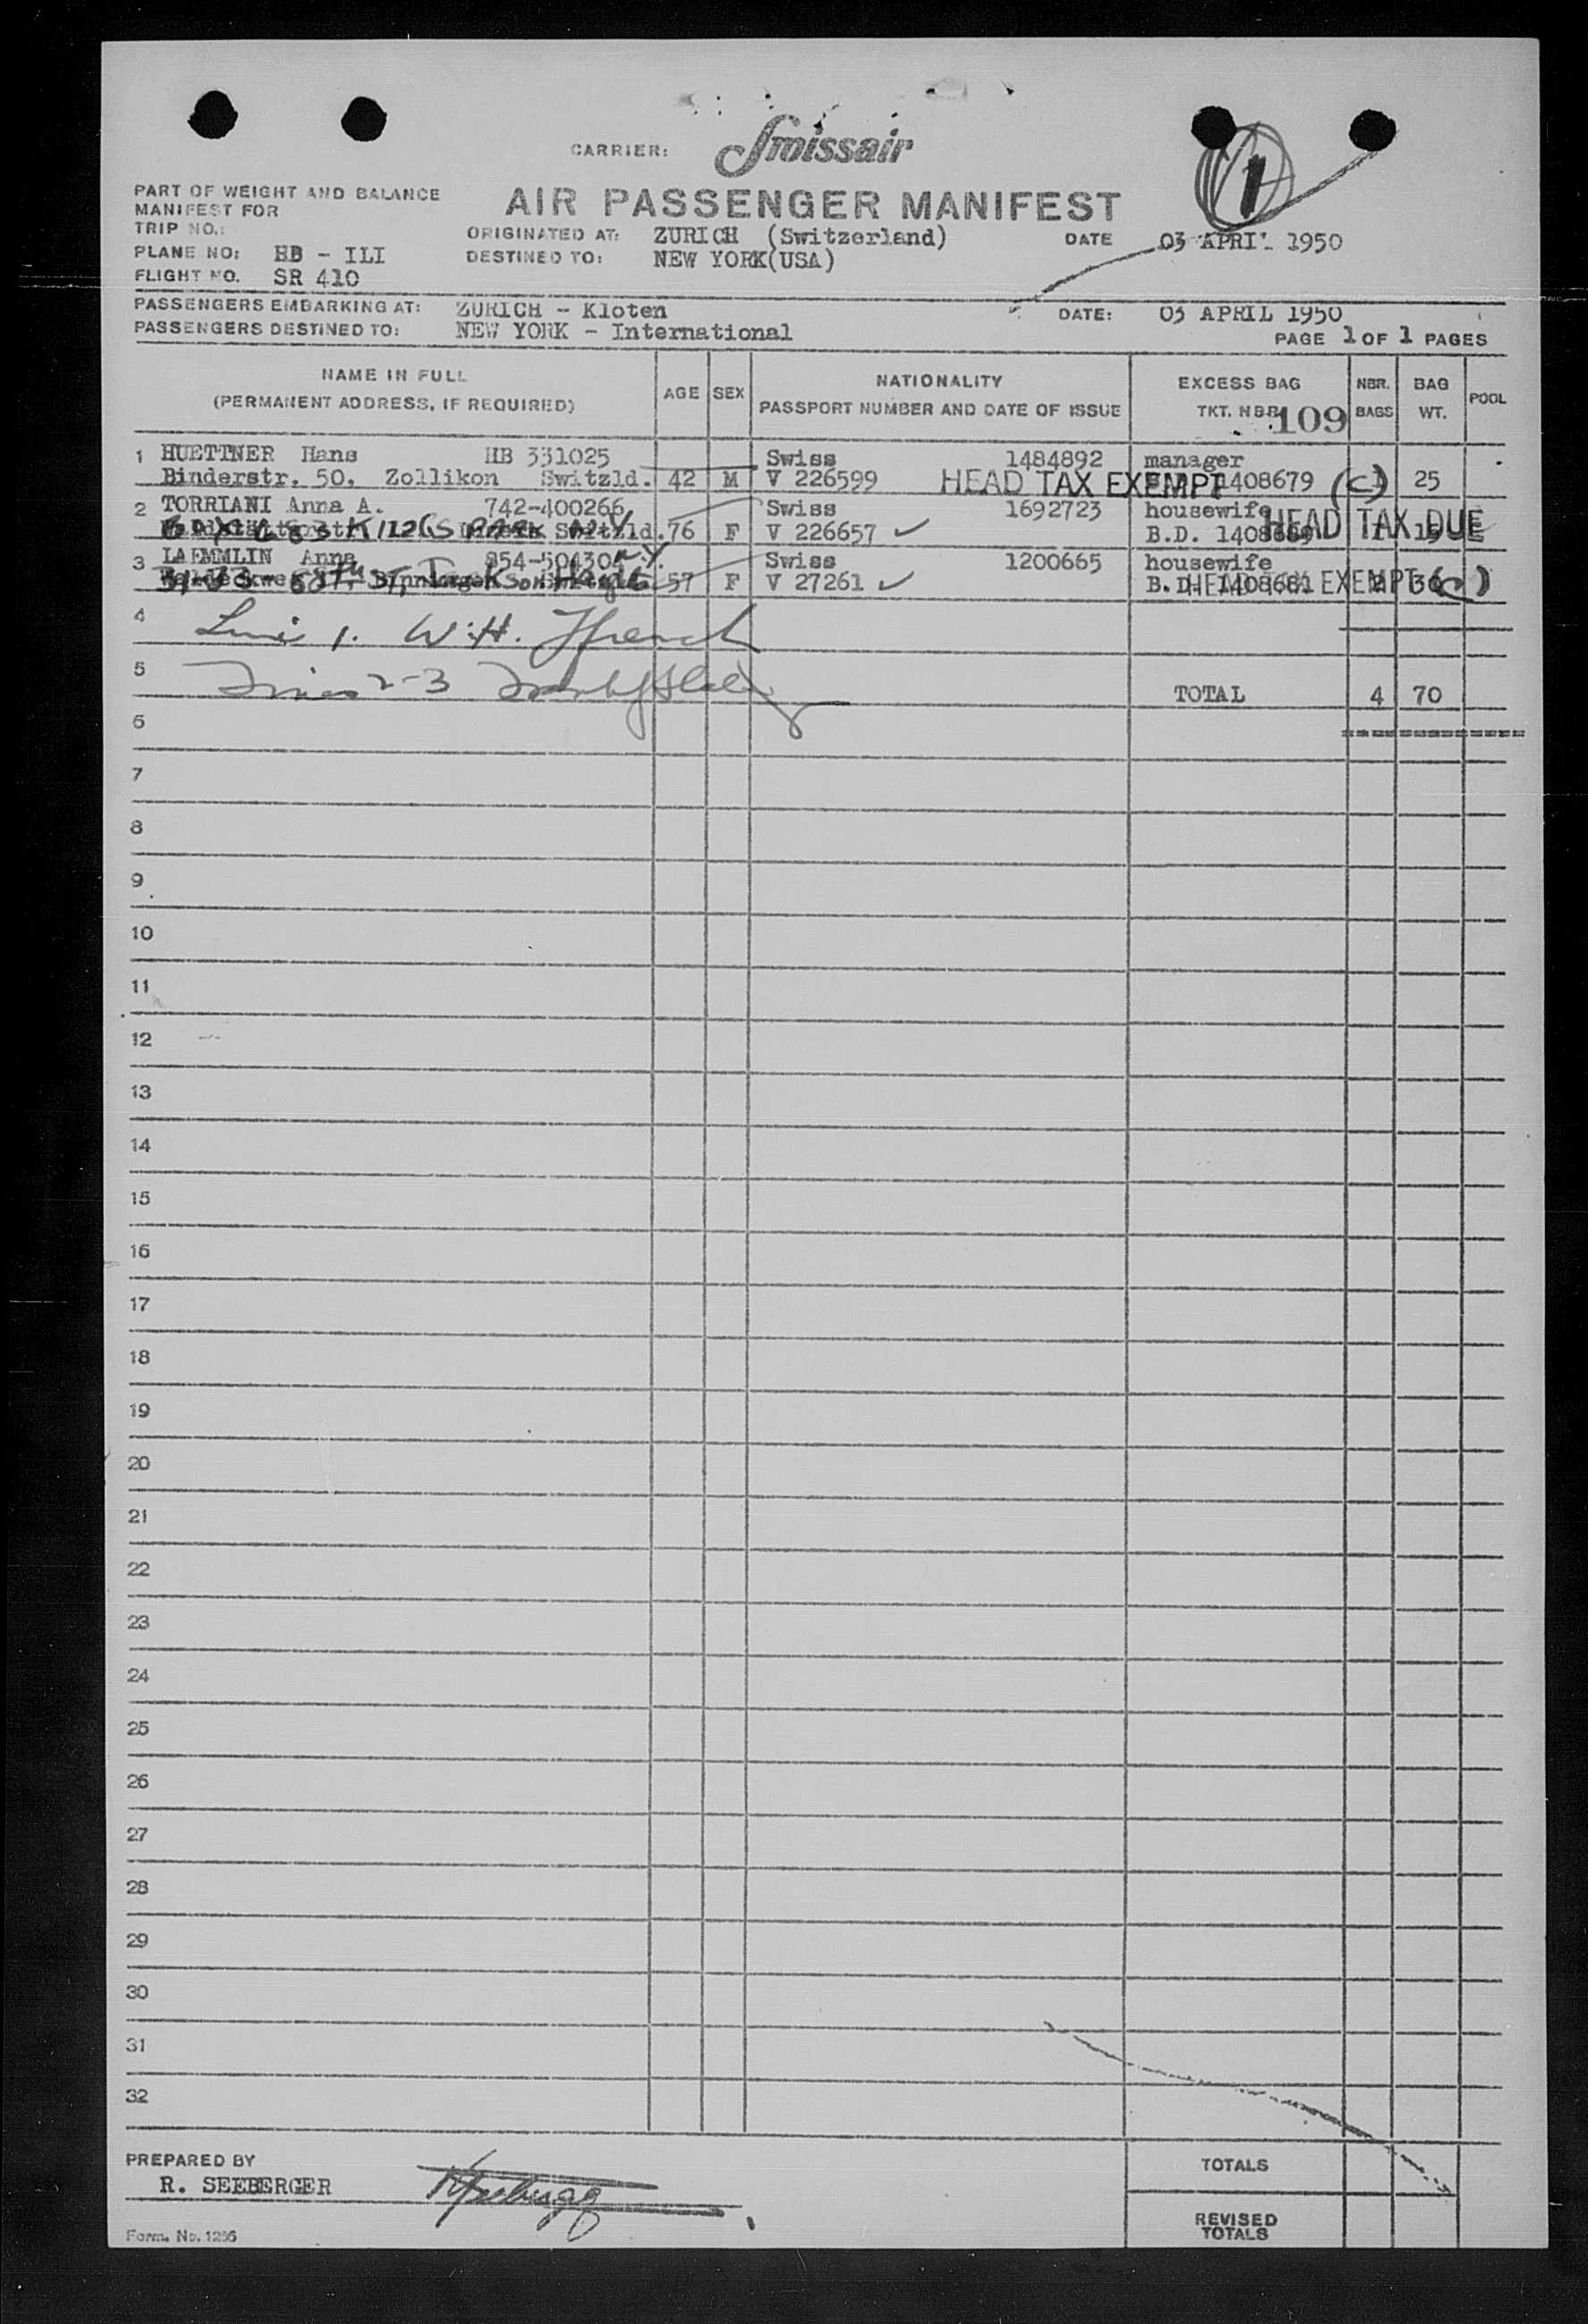 CARRIER: Swissair
1
PART OF WEIGHT AND BALANCE
MANIFEST FOR
AIR PASSENGER MANIFEST
TRIP NO.:
ORIGINATED AT: ZURICH (Switzerland) DATE 03 APRIL 1950
PLANE NO: HB - ILI DESTINED TO: NEW YORK(USA)
FLIGHT NO. SR 410
PASSENGERS EMBARKING AT: ZURICH - Kloten DATE: 03 APRIL 1950
PASSENGERS DESTINED TO: NEW YORK - International
PAGE 1 OF 1 PAGES
NAME IN FULL
(PERMANENT ADDRESS, IF REQUIRED) AGE SEX
NATIONALITY
PASSPORT NUMBER AND DATE OF ISSUE
EXCESS BAG
TKT. NBR. 109
NBR. BAGS
BAG WT.
POOL
1 HUETTNER Hans HB 331025 Swiss 1484892 manager
Binderstr. 50, Zollikon Switzld. 42 M V 226599 HEAD TAX EXEMPT 1408679 (c) 1 25
2 TORRIANI Anna A. 742-400266 Swiss 1692723 housewife
KINGS PARK N.Y. 76 F V 226657 B.D. HEAD TAX DUE
3 LAEMMLIN Anna 854-504304 N.Y. Swiss 1200665 housewife
57 F V 27261 B.D. 1408681 HEAD TAX EXEMPT (c)
4 Line 1. W.H.
5 Lines 2-3
TOTAL 4 70
6
7
8
9
10
11
12
13
14
15
16
17
18
19
20
21
22
23
24
25
26
27
28
29
30
31
32
PREPARED BY
R. SEEBERGER
TOTALS
REVISED
TOTALS
Form. No. 1256